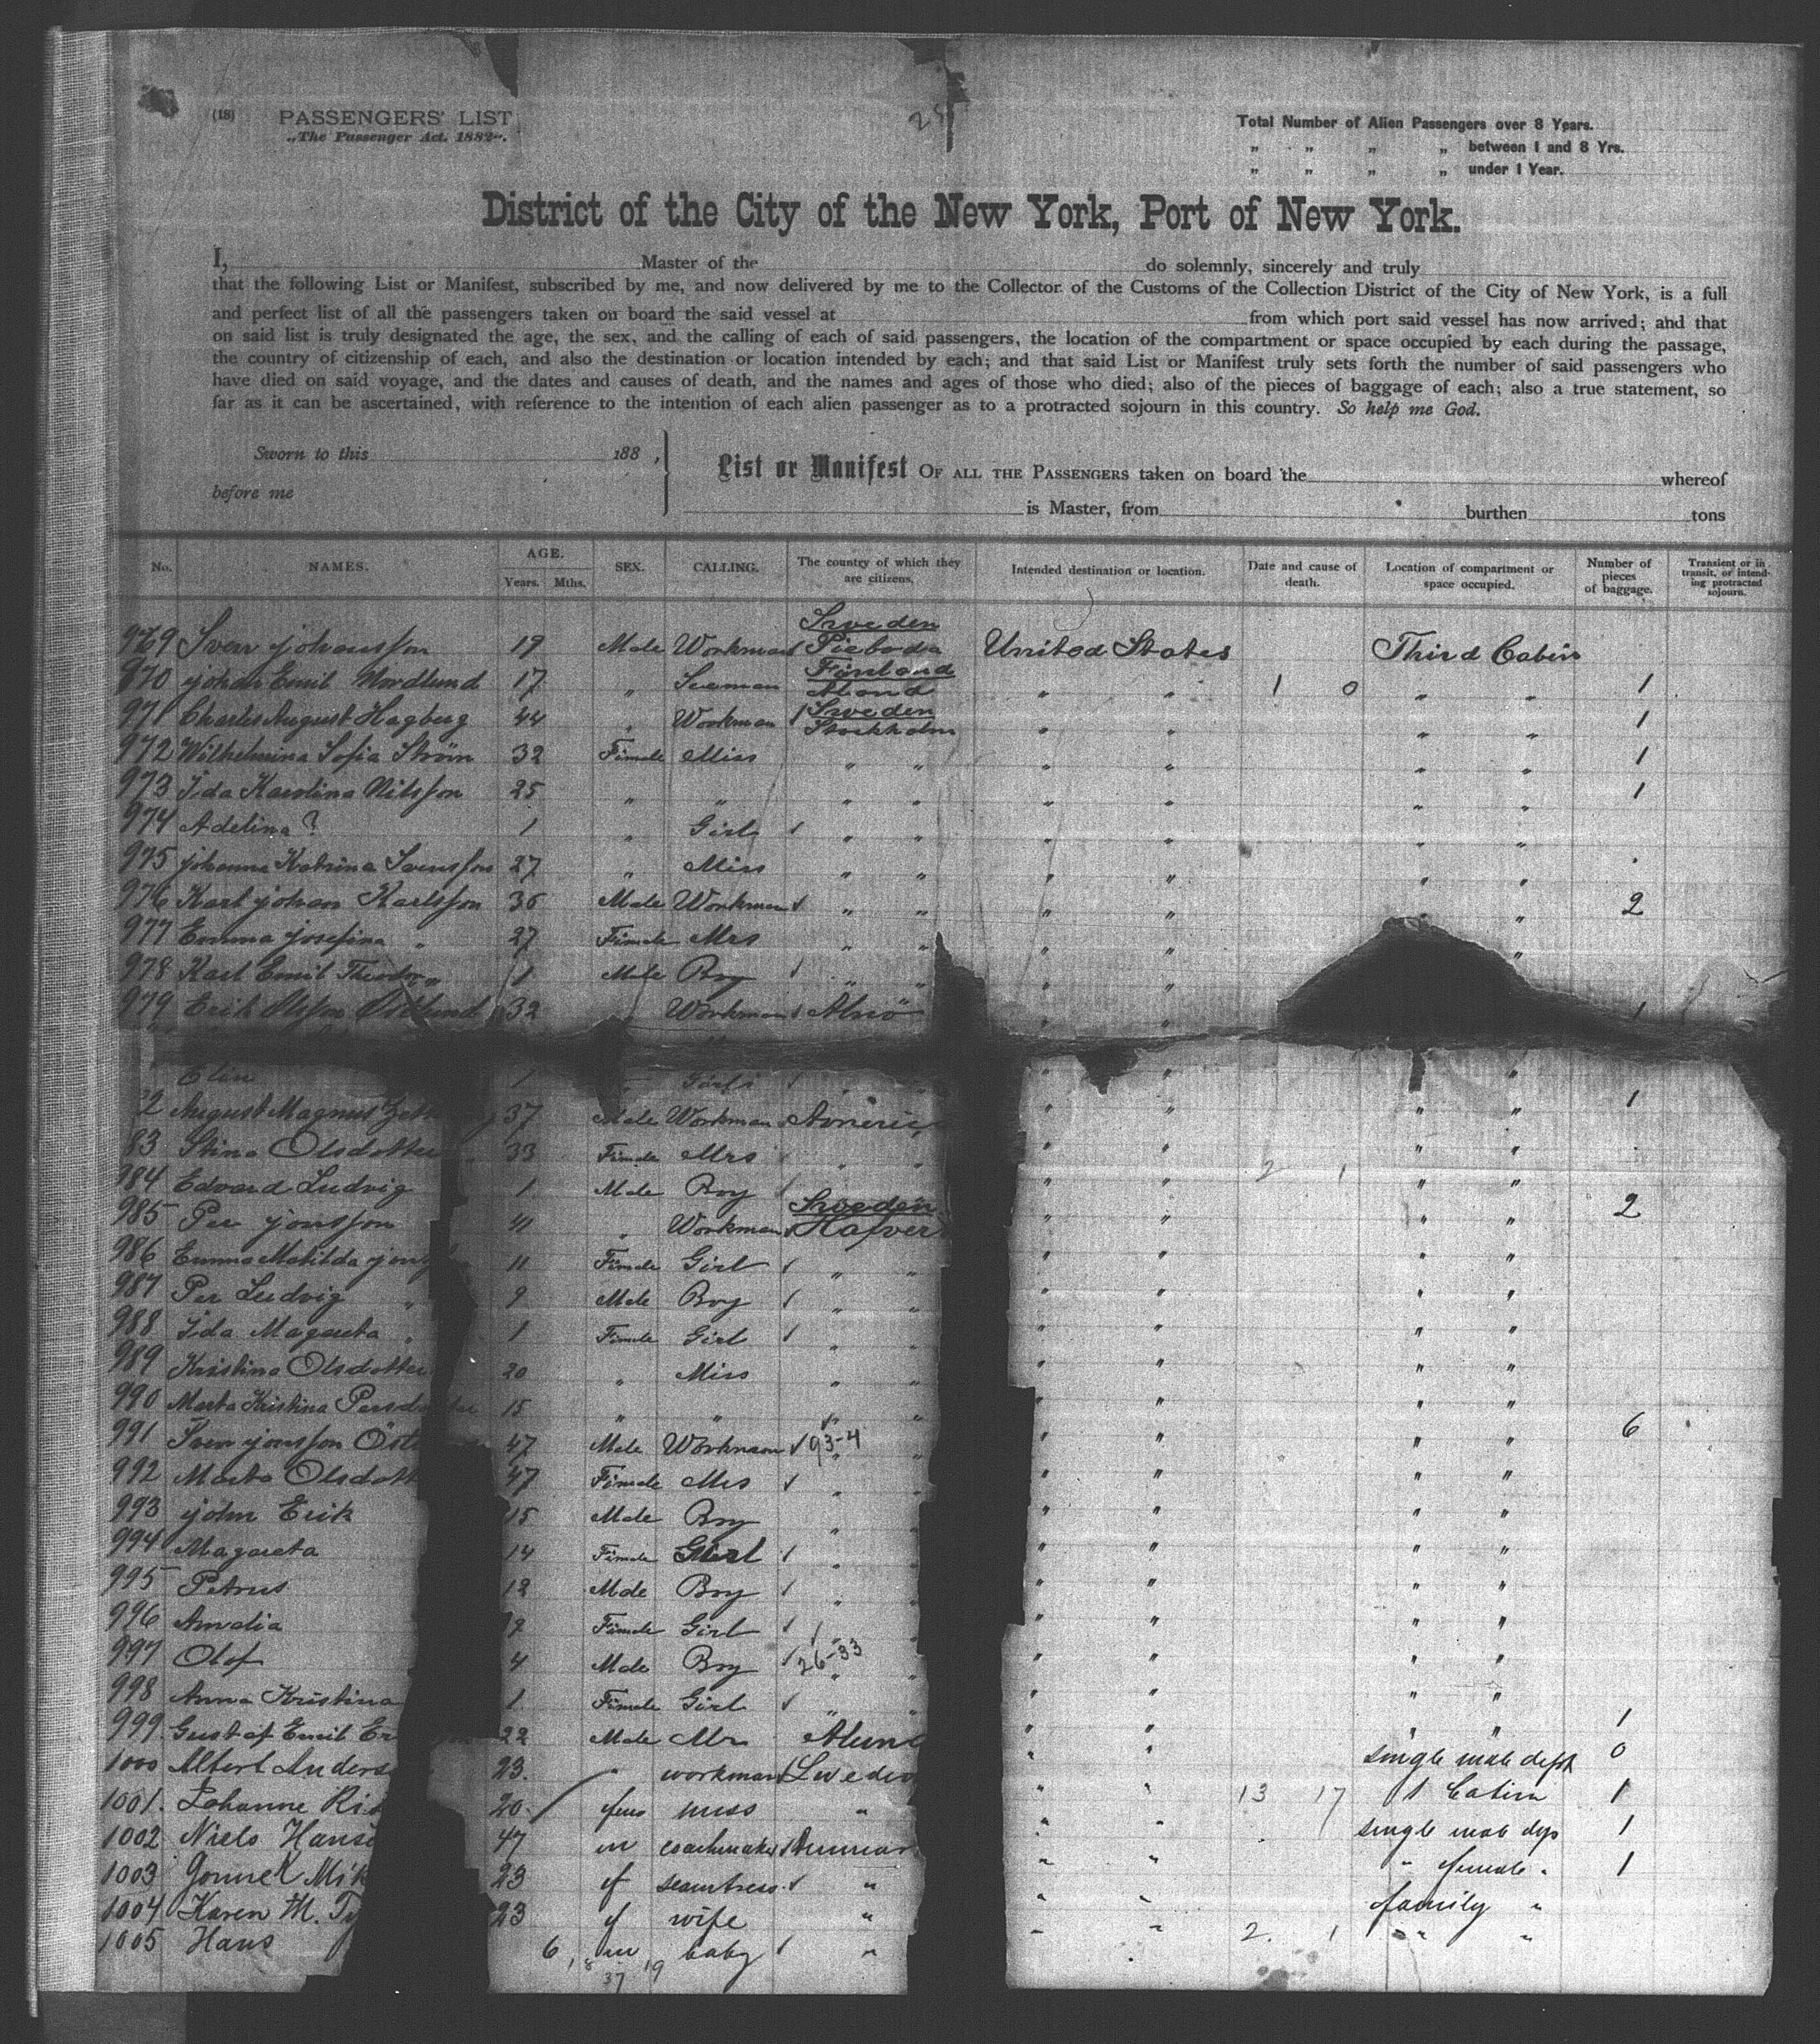 (18) PASSENGERS' LIST
„The Passenger Act. 1882".
Total Number of Alien Passengers over 8 Years.
„ „ „ „ between 1 and 8 Yrs.
„ „ „ „ under 1 Year.
District of the City of the New York, Port of New York.
I, Master of the do solemnly, sincerely and truly
that the following List or Manifest, subscribed by me, and now delivered by me to the Collector of the Customs of the Collection District of the City of New York, is a full
and perfect list of all the passengers taken on board the said vessel at from which port said vessel has now arrived; and that
on said list is truly designated the age, the sex, and the calling of each of said passengers, the location of the compartment or space occupied by each during the passage,
the country of citizenship of each, and also the destination or location intended by each; and that said List or Manifest truly sets forth the number of said passengers who
have died on said voyage, and the dates and causes of death, and the names and ages of those who died; also of the pieces of baggage of each; also a true statement, so
far as it can be ascertained, with reference to the intention of each alien passenger as to a protracted sojourn in this country. So help me God.
Sworn to this 188 ,
before me
List or Manifest OF ALL THE PASSENGERS taken on board the whereof
is Master, from burthen tons
No. NAMES. AGE. Years. Mths. SEX. CALLING. The country of which they are citizens. Intended destination or location. Date and cause of death. Location of compartment or space occupied. Number of pieces of baggage. Transient or in transit, or intending protracted sojourn.
969 Sven Johansson 19 Male Workman Sweden Piebodia United States Third Cabin
970 Johan Emil Nordlund 17 „ Seaman Finland Aland „ „ 1 0 „ „ 1
971 Charles August Hagberg 44 „ Workman Sweden Stockholm „ „ „ „ 1
972 Wilhelmina Sofia Ström 32 Fimale Miss „ „ „ „ „ „ 1
973 Ida Karolina Nilsson 25 „ „ „ „ „ „ „ „ 1
974 Adelina ? 1 „ Girl „ „ „ „ „ „
975 Johanna Katrina Svensson 27 „ Miss „ „ „ „ „ „
976 Karl Johan Karlsson 36 Male Workman „ „ „ „ „ 2
977 Emma Josefina „ 27 Fimale Mrs „ „ „ „ „
978 Karl Emil Theodor „ 1 Male Boy „ „ „ „
979 Erik Olsson Östlund 32 Workman Alnö „ „ 1
Elin 1 Girl „ „ „ „
2 August Magnus Zett 37 Male Workman Americ „ „ „ „ 1
83 Stina Olsdotter 33 Fimale Mrs „ „ „ „ „ „
984 Edvard Ludvig 1 Male Boy „ „ 2 1 „ „
985 Per Jonsson 41 „ Workman Sweden Hafver „ „ „ „ 2
986 Emma Matilda Jons 11 Fimale Girl „ „ „ „ „ „
987 Per Ludvig „ 9 Male Boy „ „ „ „ „ „
988 Ida Magareta „ 1 Fimale Girl „ „ „ „ „ „
989 Kristina Olsdotter 20 „ Miss „ „ „ „ „ „
990 Marta Kristina Persdotter 15 „ „ „ „ „ „ „ „
991 Sven Jonsson Öst 47 Male Workman 93-4 „ „ „ „ 6
992 Marta Olsdott 47 Fimale Mrs „ „ „ „ „
993 John Erik 15 Male Boy „ „ „ „ „
994 Magareta 14 Fimale Girl „ „ „ „ „
995 Petrus 12 Male Boy „ „ „ „ „
996 Amalia 9 Fimale Girl „ „ „ „ „
997 Olof 4 Male Boy 26-33 „ „ „ „ „
998 Anna Kristina 1 Fimale Girl „ „ „ „ „ „
999 Gustaf Emil Er 22 Male Mr Alun „ „ „ „ 1
1000 Albert Anders 23. „ workman Swede „ „ single male dept 0
1001. Johanne Ri 20. fem miss „ „ „ 13 17 1 Cabin 1
1002 Niels Hans 47 m coachmaker Denmar „ „ single male dep 1
1003 Mik 23 f seamtress „ „ „ „ female „ 1
1004 Karen M. 23 f wife „ „ „ family „
1005 Hans 6 m baby „ „ „ 2. 1 „ „
37 19